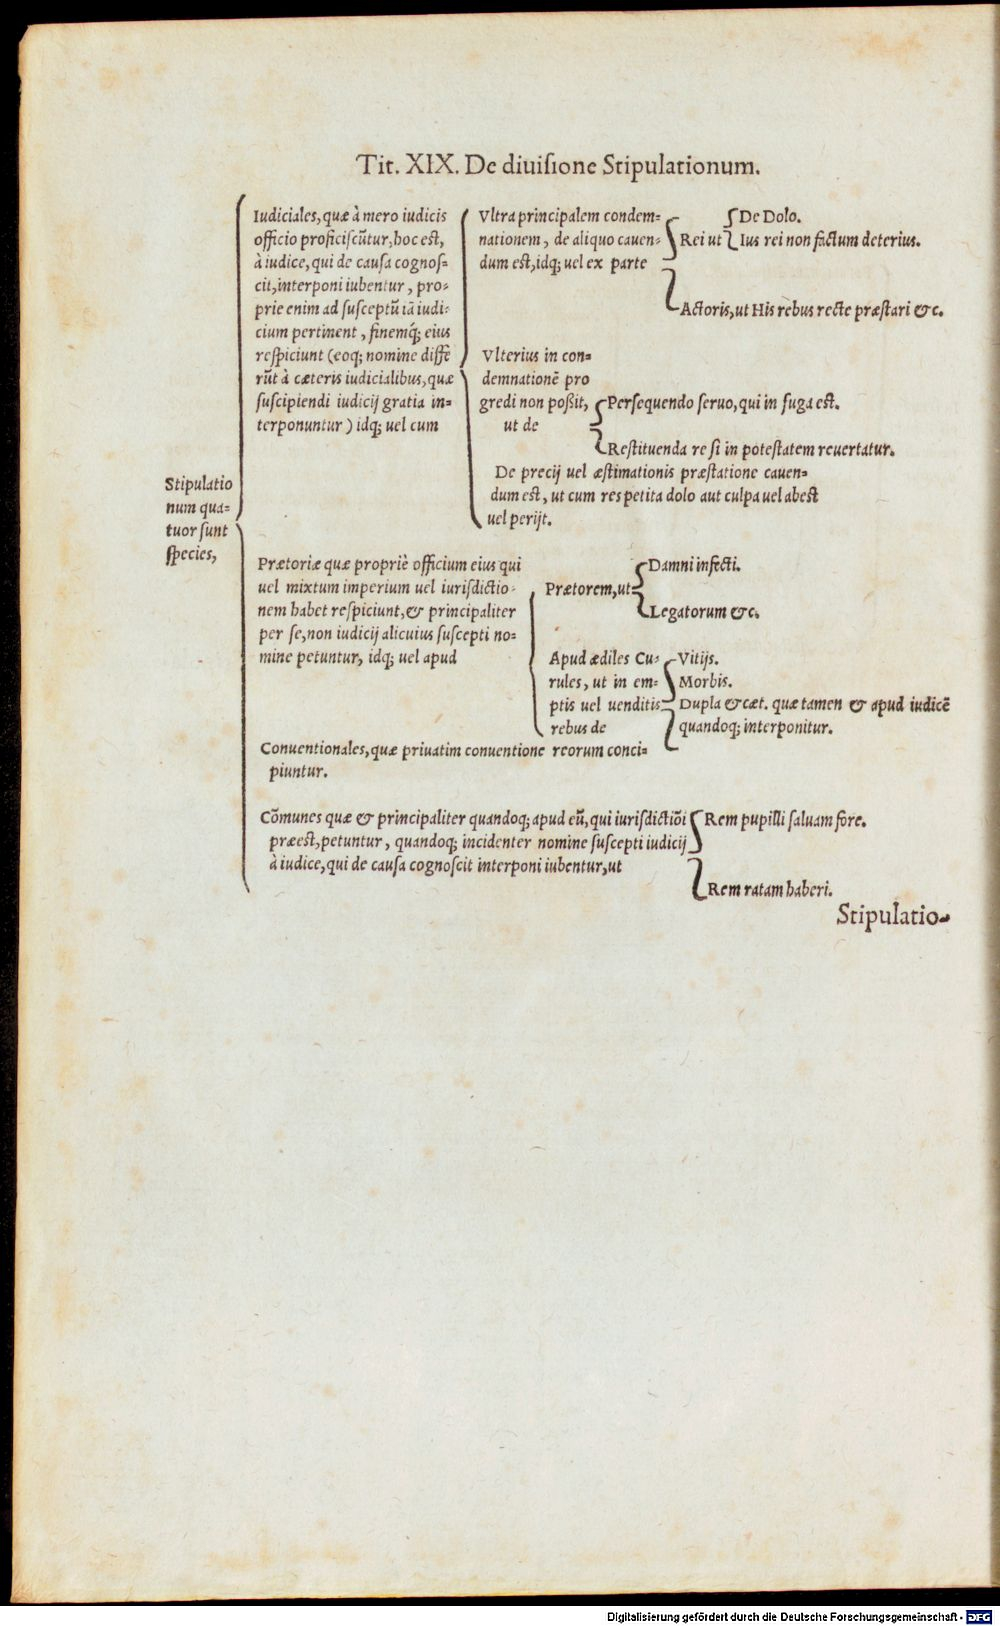 Tit. XIX. De diuisione Stipulationum.
Stipulatio
num qua=
tuor sunt
species,
Iudiciales, quæ à mero iudicis
officio proficiscũtur, hoc est,
à iudice, qui de causa cognos=
cit, interponi iubentur, pro=
prie enim ad susceptũ iã iudi=
cium pertinent, finemq́; eius
respiciunt (eoq; nomine diffe
rũt à cæteris iudicialibus, quæ
suscipiendi iudicij gratia in=
terponuntur) idq; uel cum
Vltra principalem condem=
nationem, de aliquo cauen=
dum est, idq; uel ex parte
Rei ut
De Dolo.
Ius rei non factum deterius.
Actoris, ut His rebus recte præstari &c.
Vlterius in con=
demnationẽ pro
gredi non poßit,
ut de
Persequendo seruo, qui in fuga est.
Restituenda re si in potestatem reuertatur.
De precij uel æstimationis præstatione cauen=
dum est, ut cum res petita dolo aut culpa uel abest
uel perijt.
Prætoriæ quæ propriè officium eius qui
uel mixtum imperium uel iurisdictio=
nem habet respiciunt, & principaliter
per se, non iudicij alicuius suscepti no=
mine petuntur, idq; uel apud
Prætorem, ut
Damni infecti.
Legatorum &c.
Apud ædiles Cu=
rules, ut in em=
ptis uel uenditis
rebus de
Vitijs.
Morbis.
Dupla &cæt. quæ tamen & apud iudicẽ
quandoq; interponitur.
Conuentionales, quæ priuatim conuentione reorum conci=
piuntur.
Cõmunes quæ & principaliter quandoq; apud eũ, qui iurisdictiõi
præest, petuntur, quandoq; incidenter nomine suscepti iudicij
à iudice, qui de causa cognoscit interponi iubentur, ut
Rem pupilli saluam fore.
Rem ratam haberi.
Stipulatio=
Digitalisierung gefördert durch die Deutsche Forschungsgemeinschaft - DFG